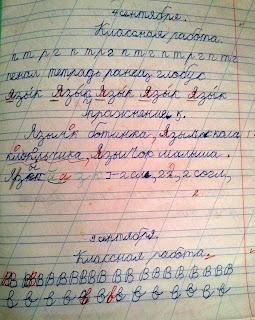 4 сентября.
Классная работа.
п т р г п т р г п т г п т р г р г п т г
пенал тетрадь ранец глобус
Язык Язык Язык Язык Язык
Упражнение 1.
Язычок ботинка, Язычок
колокольчика, Язычок малыша.
2 сл., 2 согл.
9 сентября.
Классная работа.
В В В В В В В В В В В В В В В
в в в в в в в в в в в в